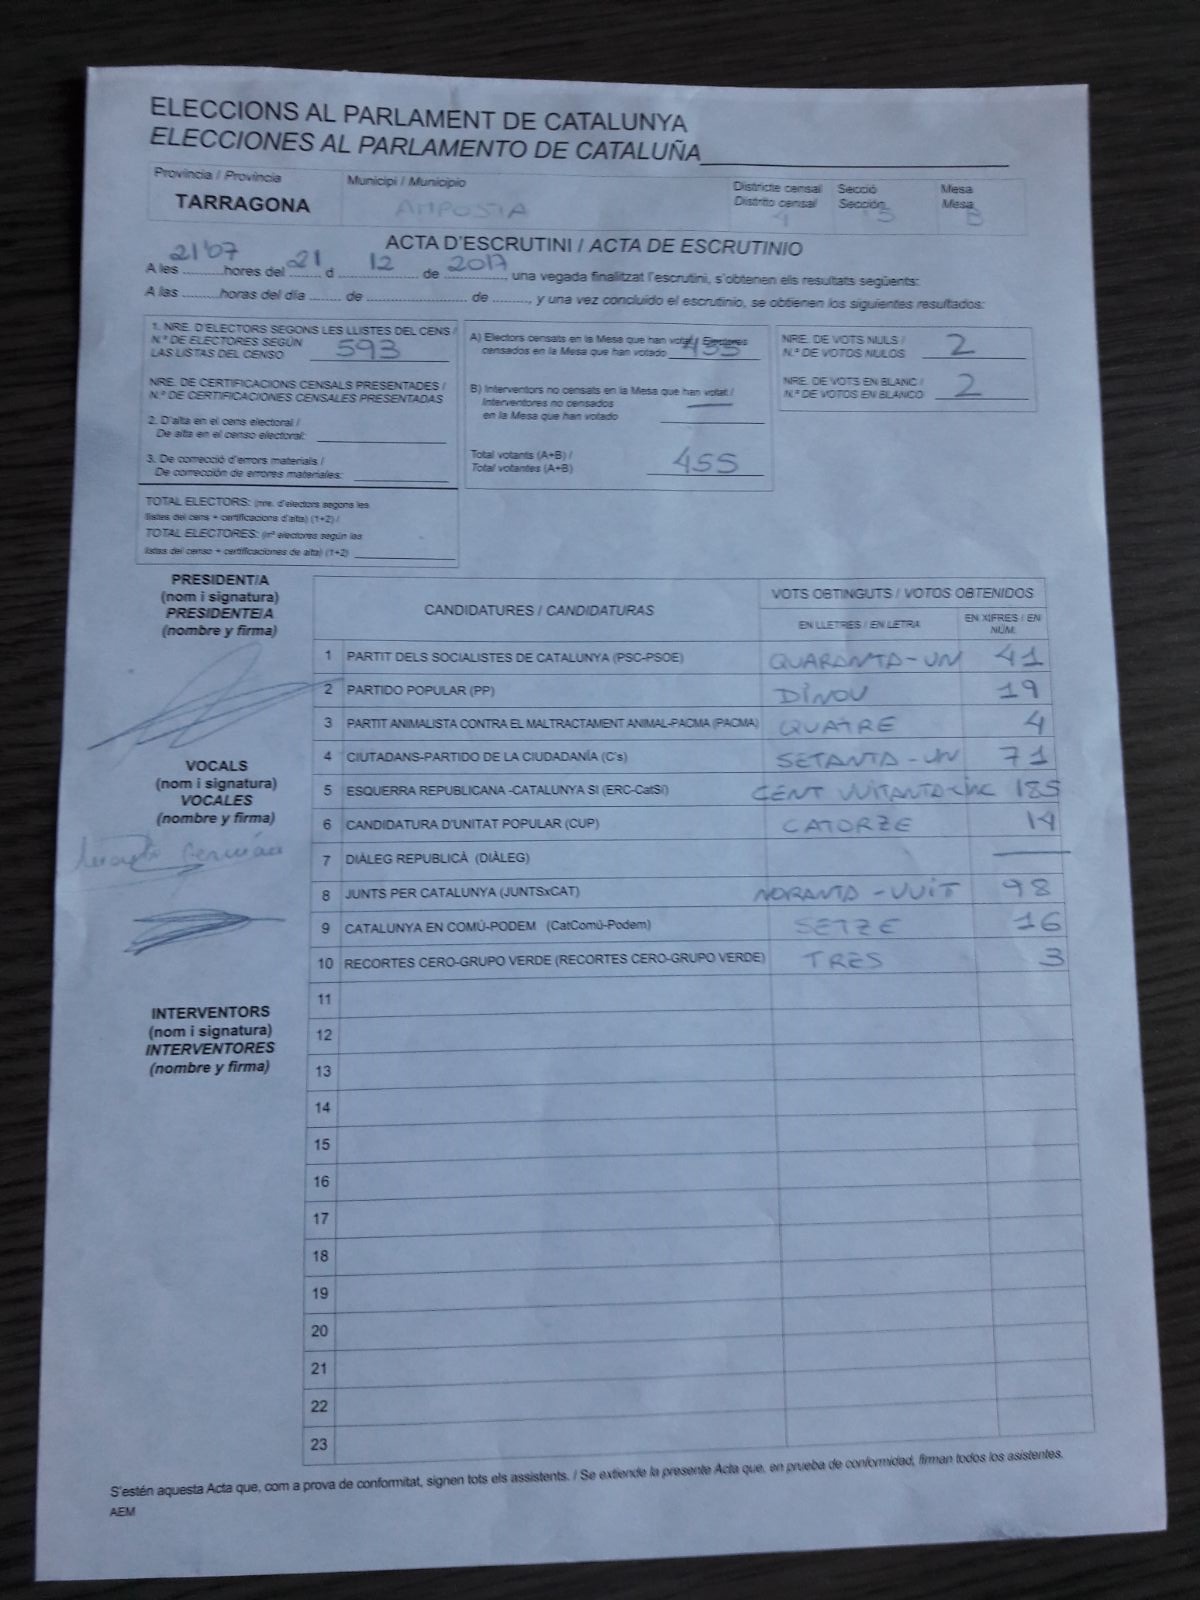 ELECCIONS AL PARLAMENT DE CATALUNYA
ELECCIONES AL PARLAMENTO DE CATALUÑA
Provincia / Provincia
TARRAGONA
Municipi / Municipio
AMPOSTA
Districte censal
Distrito censal
4
Secció
Sección
5
Mesa
Mesa
B
ACTA D'ESCRUTINI / ACTA DE ESCRUTINIO
A les 21'07 hores del 21 d 12 de 2017, una vegada finalitzat l'escrutini, s'obtenen els resultats següents:
A las ..........horas del día ........ de ........................ de ........., y una vez concluido el escrutinio, se obtienen los siguientes resultados:
1. NRE. D'ELECTORS SEGONS LES LLISTES DEL CENS /
N.º DE ELECTORES SEGÚN
LAS LISTAS DEL CENSO 593
NRE. DE CERTIFICACIONS CENSALS PRESENTADES /
N.º DE CERTIFICACIONES CENSALES PRESENTADAS
2. D'alta en el cens electoral /
De alta en el censo electoral:
3. De correcció d'errors materials /
De corrección de errores materiales:
TOTAL ELECTORS: (nre. d'electors segons les
llistes del cens + certificacions d'alta) (1+2) /
TOTAL ELECTORES: (nº electores según las
listas del censo + certificaciones de alta) (1+2)
A) Electors censats en la Mesa que han votat / Electores
censados en la Mesa que han votado 455
B) Interventors no censats en la Mesa que han votat /
Interventores no censados
en la Mesa que han votado
Total votants (A+B) /
Total votantes (A+B) 455
NRE. DE VOTS NULS /
N.º DE VOTOS NULOS 2
NRE. DE VOTS EN BLANC /
N.º DE VOTOS EN BLANCO 2
PRESIDENT/A
(nom i signatura)
PRESIDENTE/A
(nombre y firma)
VOCALS
(nom i signatura)
VOCALES
(nombre y firma)
INTERVENTORS
(nom i signatura)
INTERVENTORES
(nombre y firma)
CANDIDATURES / CANDIDATURAS
VOTS OBTINGUTS / VOTOS OBTENIDOS
EN LLETRES / EN LETRA
EN XIFRES / EN
NÚM.
1 PARTIT DELS SOCIALISTES DE CATALUNYA (PSC-PSOE) QUARANTA-UN 41
2 PARTIDO POPULAR (PP) DINOU 19
3 PARTIT ANIMALISTA CONTRA EL MALTRACTAMENT ANIMAL-PACMA (PACMA) QUATRE 4
4 CIUTADANS-PARTIDO DE LA CIUDADANÍA (C's) SETANTA-UN 71
5 ESQUERRA REPUBLICANA -CATALUNYA SI (ERC-CatSí) CENT VUITANTA-CINC 185
6 CANDIDATURA D'UNITAT POPULAR (CUP) CATORZE 14
7 DIÀLEG REPUBLICÀ (DIÀLEG)
8 JUNTS PER CATALUNYA (JUNTSxCAT) NORANTA-VUIT 98
9 CATALUNYA EN COMÚ-PODEM (CatComú-Podem) SETZE 16
10 RECORTES CERO-GRUPO VERDE (RECORTES CERO-GRUPO VERDE) TRES 3
11
12
13
14
15
16
17
18
19
20
21
22
23
S'estén aquesta Acta que, com a prova de conformitat, signen tots els assistents. / Se extiende la presente Acta que, en prueba de conformidad, firman todos los asistentes.
AEM